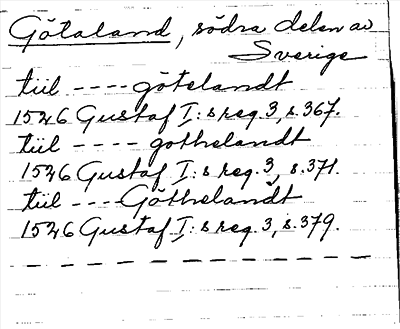 Götaland, södra delen av
Sverige
tiil ---- götelandt
1526 Gustaf I:s reg. 3, s. 367.
tiil ---- gothelandt
1526 Gustaf I:s reg. 3, s. 371.
tiil ---- Göthelandt
1526 Gustaf I:s reg. 3, s. 379.